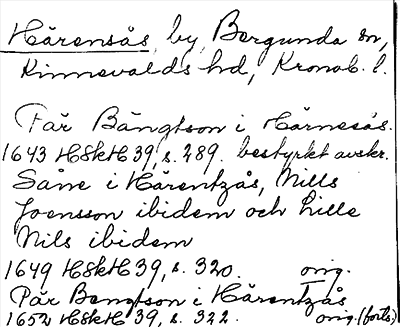 Härensås, by, Bergunda sn,
Kinnevalds hd, Kronob. l.
Pär Bängtson i Härnesås.
1643 HSkH 39, s. 289. bestyrkt avskr.
Såne i Härentzås, Nills
Joensson ibidem och Lille
Nils ibidem
1649 HSkH 39, s. 320. orig.
Pär Bengtson i Härentzås
1652 HSkH 39, s. 322. orig. (forts)